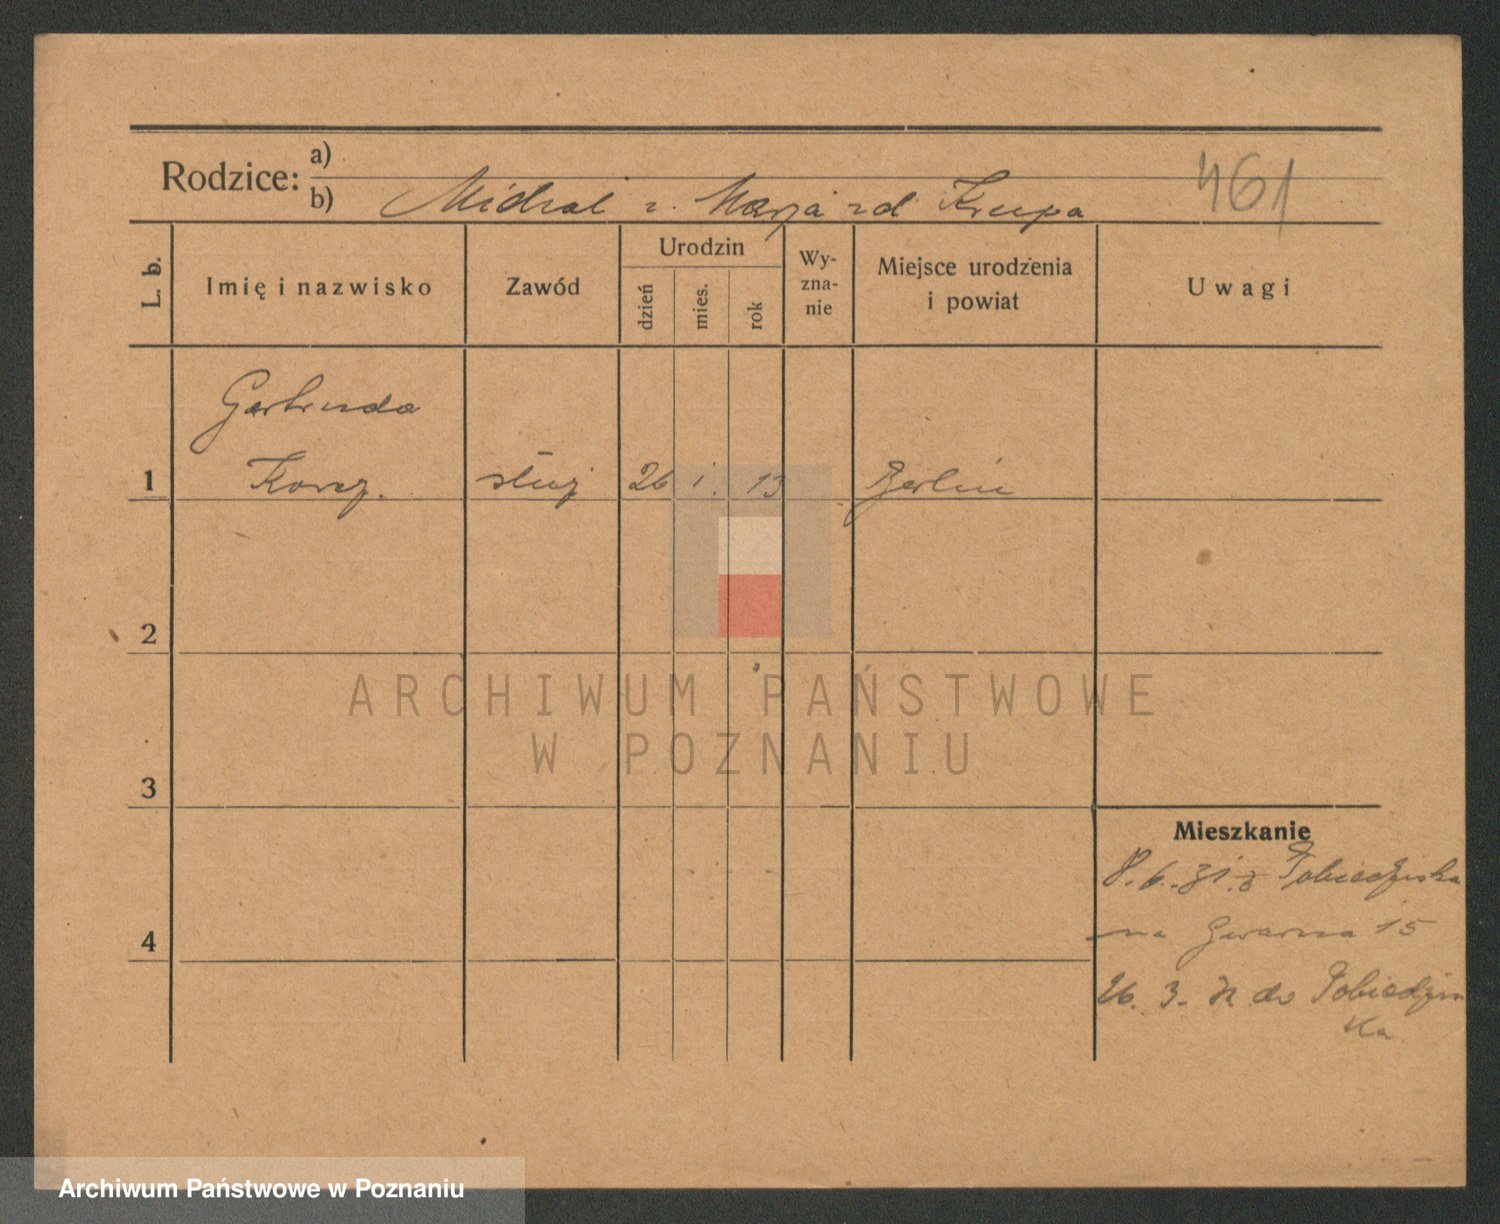 461
Rodzice: a)
b) Michał i Marja zd Krupa
L. b.
Imię i nazwisko
Zawód
Urodzin
dzień
mies.
rok
Wy-
zna-
nie
Miejsce urodzenia
i powiat
Uwagi
Gertruda
1 służ 26 1. 13 Berlin
2
3
4
ARCHIWUM PAŃSTWOWE
W POZNANIU
Mieszkanie
8. 6. 31. z Pobiedziska
na Gwarna 15
26. 3. do Pobiedzis
ka
Archiwum Państwowe w Poznaniu